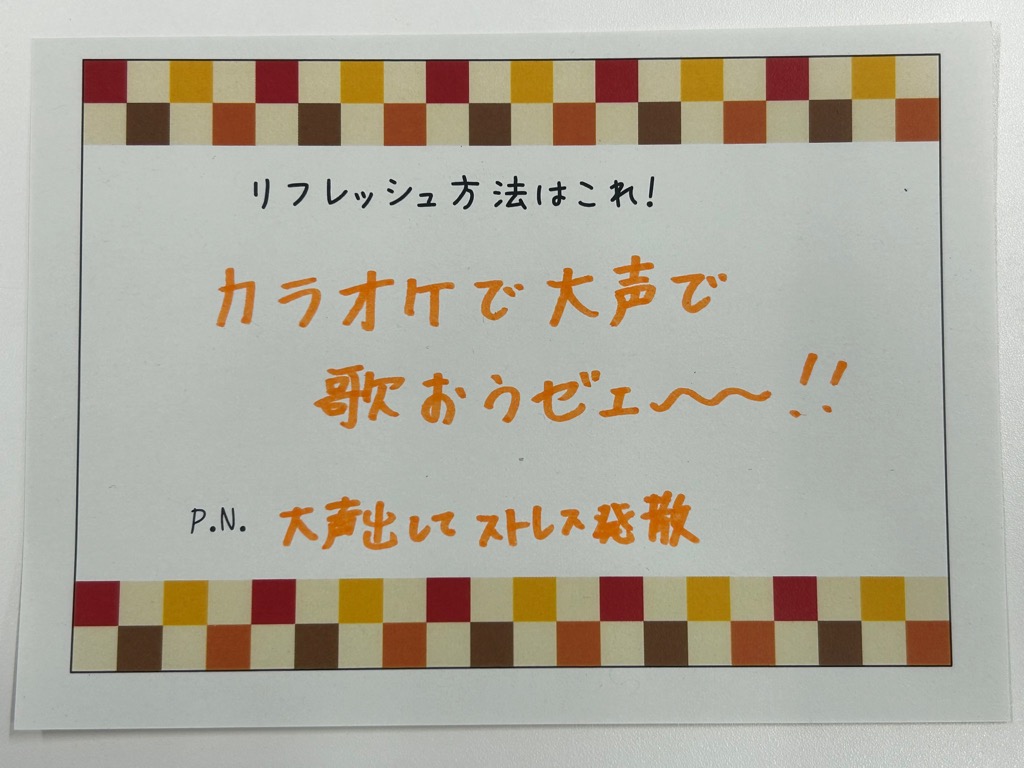 リフレッシュ方法はこれ!
カラオケで大声で
歌おうゼェ〜〜!!
P.N. 大声出してストレス発散